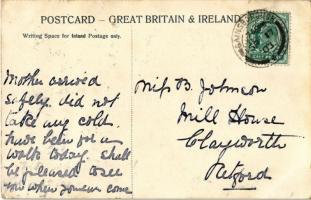 POSTCARD – GREAT BRITAIN & IRELAND
Writing Space for Inland Postage only.
Mother arrived
safely. did not
take any cold.
have been for a
walk today. shall
be pleased to see
you when you can come
Miss B. Johnson
Mill House
Clayworth
Retford